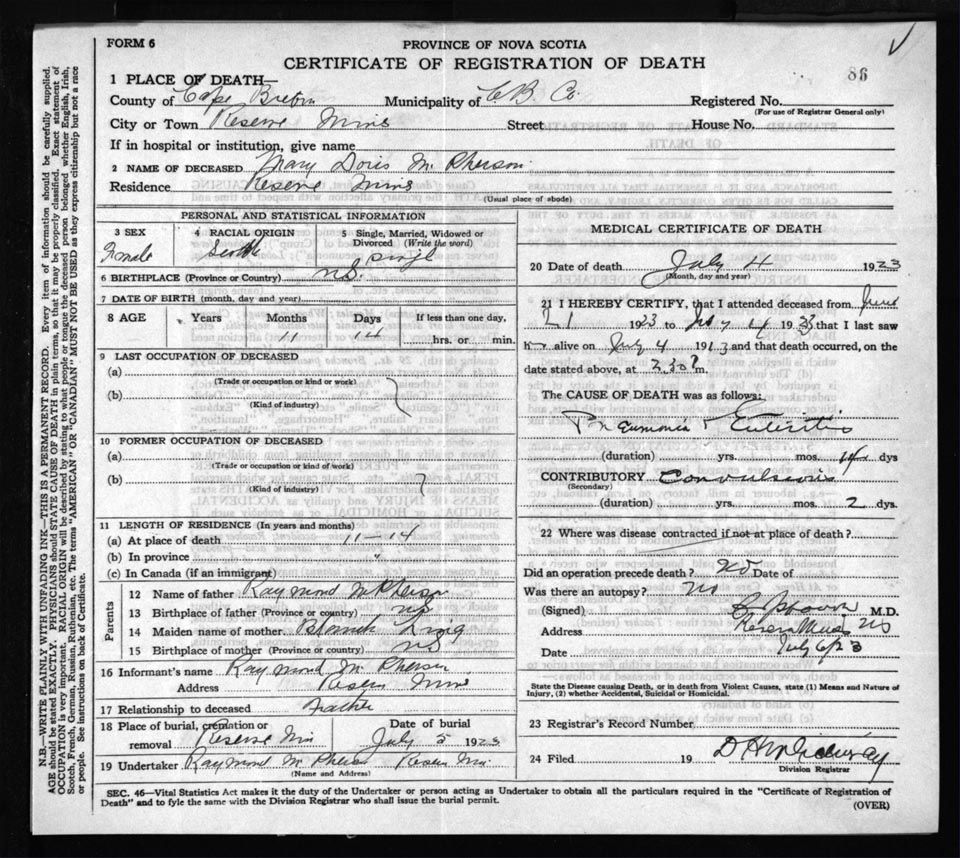 FORM 6
PROVINCE OF NOVA SCOTIA
CERTIFICATE OF REGISTRATION OF DEATH
86
1 PLACE OF DEATH—
County of Cape Breton Municipality of C. B. Co. Registered No.
(For use of Registrar General only)
City or Town Reserve Mines Street House No.
If in hospital or institution, give name
2 NAME OF DECEASED Mary Doris McPherson
Residence Reserve Mines
(Usual place of abode)
PERSONAL AND STATISTICAL INFORMATION
3 SEX Female
4 RACIAL ORIGIN Scotch
5 Single, Married, Widowed or Divorced (Write the word) Single
6 BIRTHPLACE (Province or Country) N.S.
7 DATE OF BIRTH (month, day and year)
8 AGE Years Months 11 Days 14 If less than one day, hrs. or min.
9 LAST OCCUPATION OF DECEASED
(a)
(Trade or occupation or kind or work)
(b)
(Kind of industry)
10 FORMER OCCUPATION OF DECEASED
(a)
(Trade or occupation or kind or work)
(b)
(Kind of industry)
11 LENGTH OF RESIDENCE (In years and months)
(a) At place of death 11–14
(b) In province "
(c) In Canada (if an immigrant)
Parents
12 Name of father Raymond McPherson
13 Birthplace of father (Province or country) NS
14 Maiden name of mother
15 Birthplace of mother (Province or country) NS
16 Informant's name Raymond McPherson
Address Reserve Mines
17 Relationship to deceased Father
18 Place of burial, cremation or removal Reserve Mines Date of burial July 5 1923
19 Undertaker Raymond McPherson Reserve Mines
(Name and Address)
MEDICAL CERTIFICATE OF DEATH
20 Date of death July 4 1923
(Month, day and year)
21 I HEREBY CERTIFY, that I attended deceased from June
21 1923 to July 4 1923 that I last saw
h alive on July 4 1913 and that death occurred, on the
date stated above, at 2.30 P m.
The CAUSE OF DEATH was as follows:
Pneumonia & Enteritis
(duration) yrs. mos. 14 dys
CONTRIBUTORY Convulsions
(Secondary)
(duration) yrs. mos. 2 dys.
22 Where was disease contracted if not at place of death?
Did an operation precede death? No Date of
Was there an autopsy? No
(Signed) M.D.
Address Reserve Mines NS
Date July 6/23
State the Disease causing Death, or in death from Violent Causes, state (1) Means and Nature of Injury, (2) whether Accidental, Suicidal or Homicidal.
23 Registrar's Record Number
24 Filed 19
Division Registrar
SEC. 46—Vital Statistics Act makes it the duty of the Undertaker or person acting as Undertaker to obtain all the particulars required in the "Certificate of Registration of
Death" and to fyle the same with the Division Registrar who shall issue the burial permit.
(OVER)
N.B.—WRITE PLAINLY WITH UNFADING INK—THIS IS A PERMANENT RECORD. Every item of information should be carefully supplied.
AGE should be stated EXACTLY. PHYSICIANS should STATE CAUSE OF DEATH in plain terms, so that it may be properly classified. Exact statement of
OCCUPATION is very important. RACIAL ORIGIN will be described by stating to what people or tongue the deceased person belonged whether English, Irish,
Scotch, French, German, Russian, Ruthenian, etc. The terms "AMERICAN" OR "CANADIAN" MUST NOT BE USED as they express citizenship but not a race
or people. See instructions on back of Certificate.